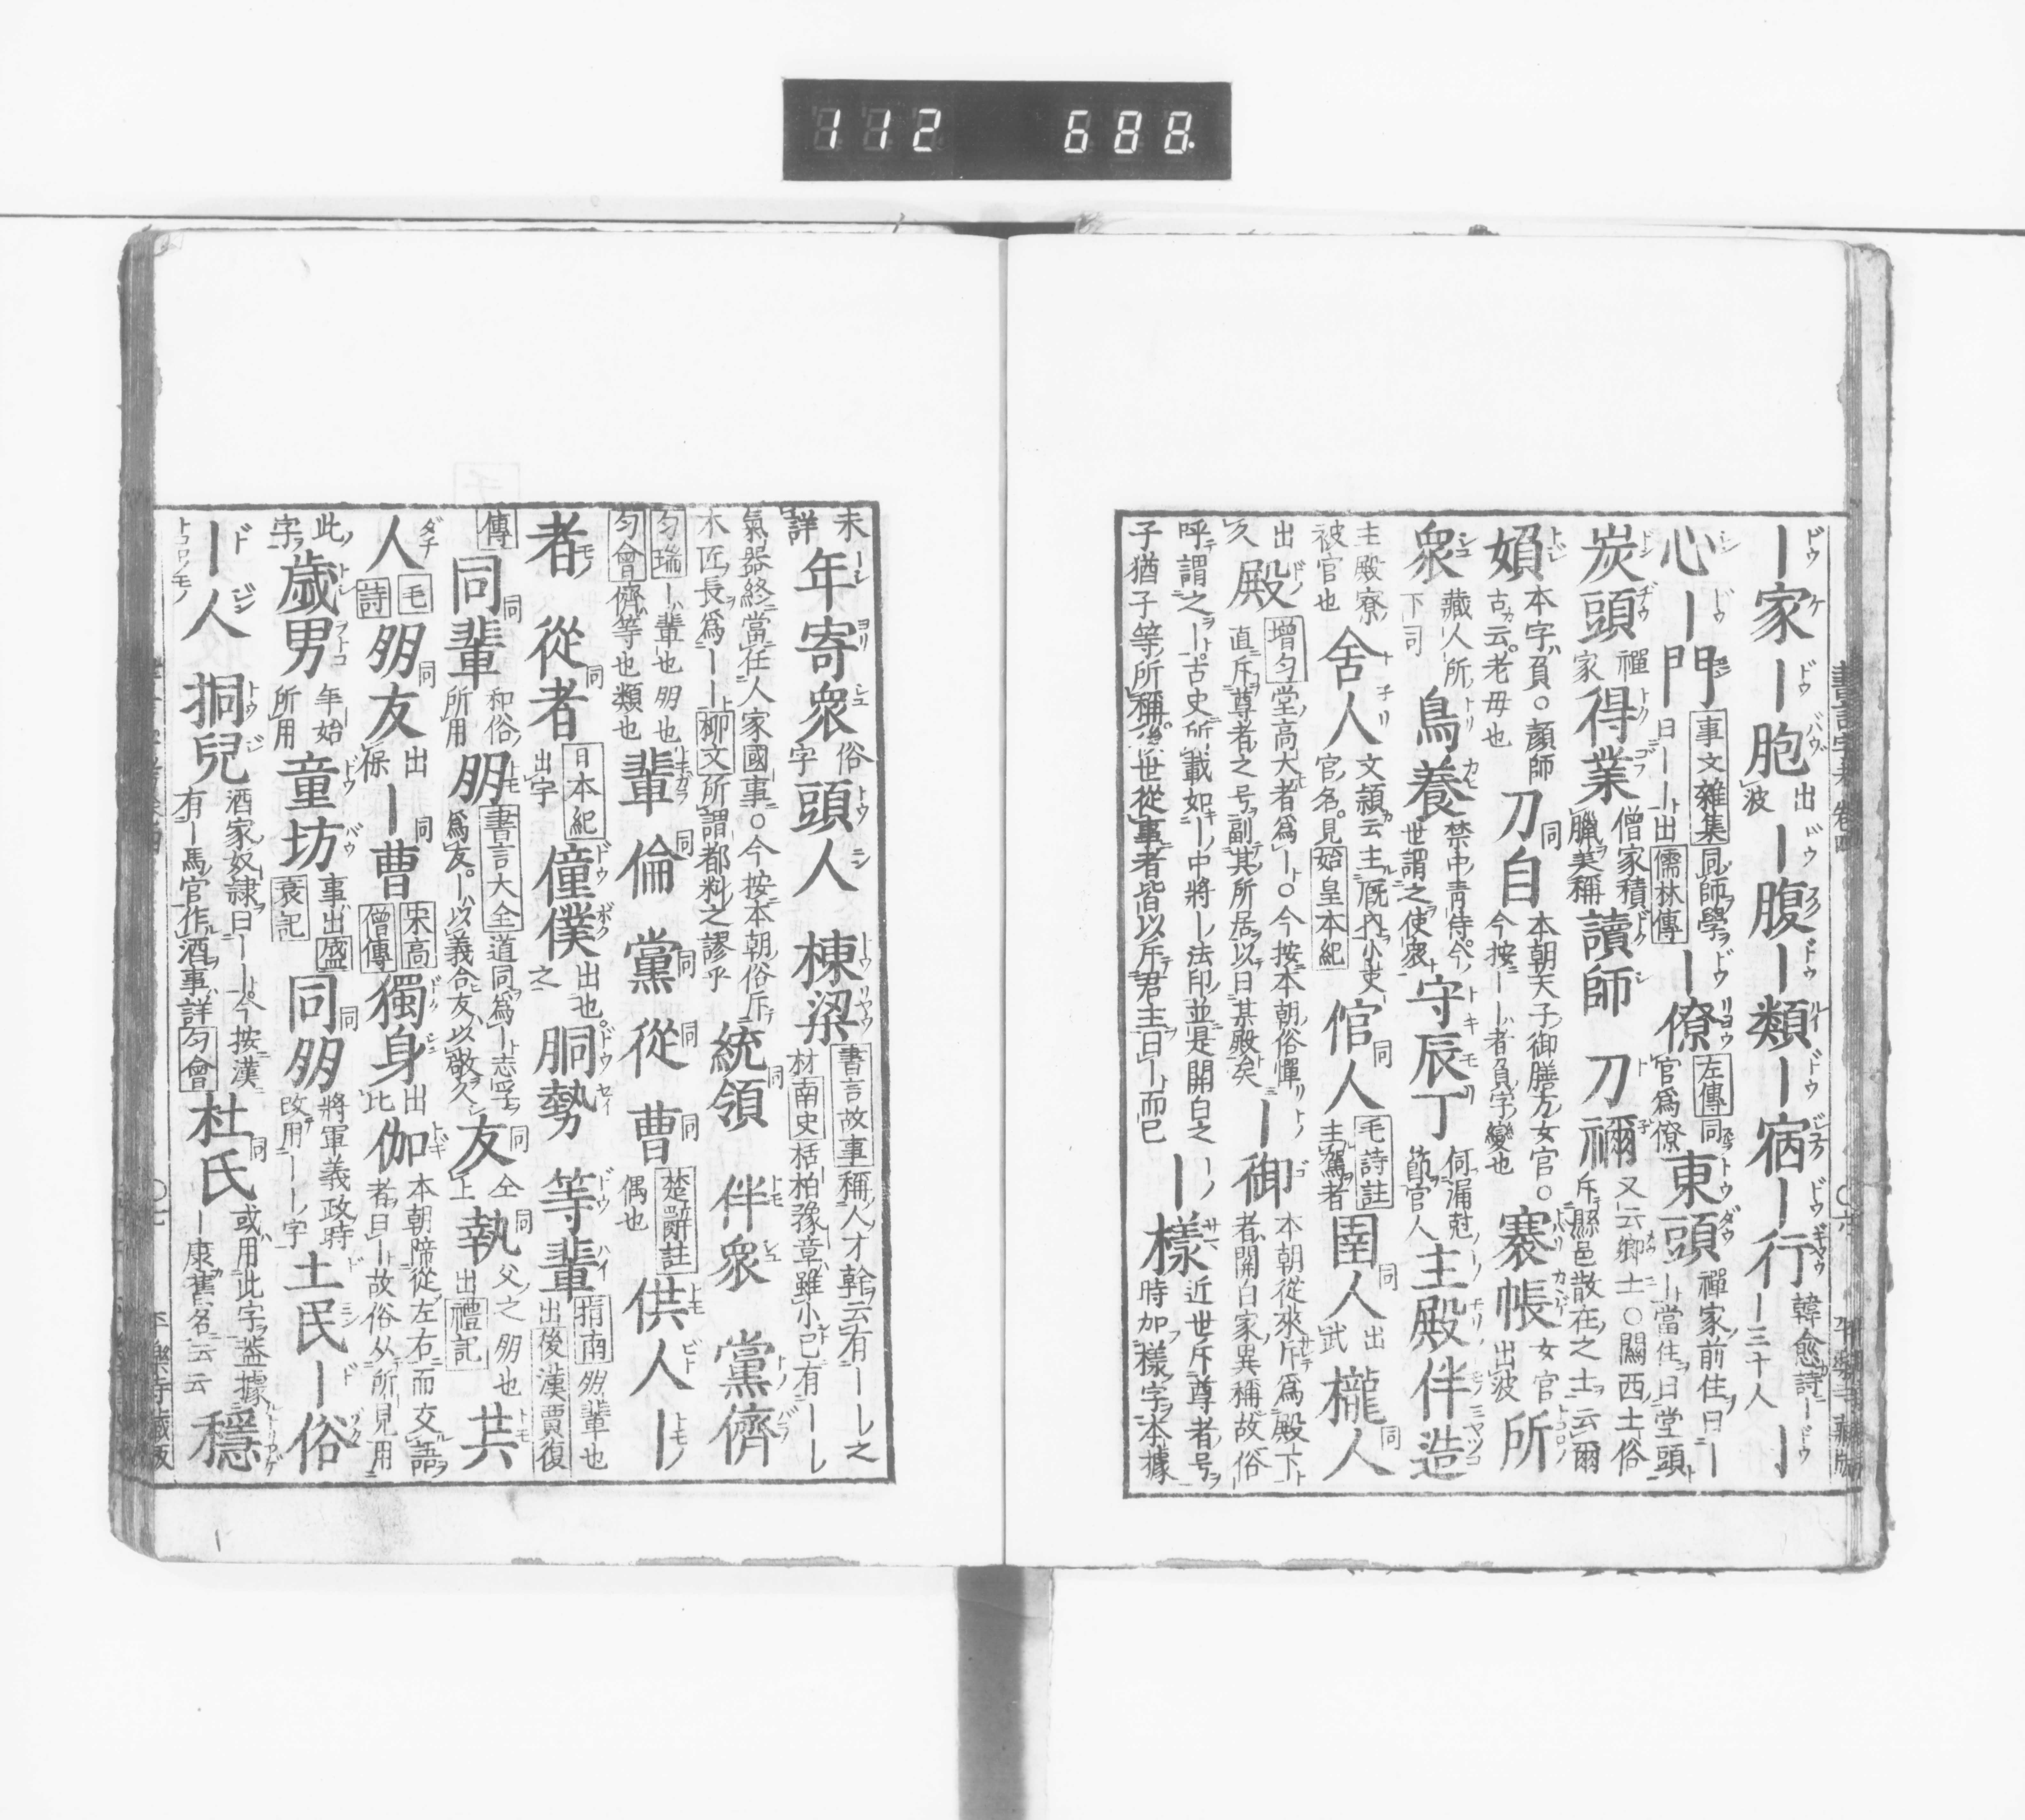 112 688
｜家｜胞出波｜腹｜類｜宿｜行韓愈詩｜三十人｜
心｜門事文雜集同師學曰｜｜出儒林傳｜僚左傳同官爲僚東頭禪家前住曰｜｜當住曰堂頭
炭頭禪家得業僧家積臘美稱讀師 刀禰又云鄉士○關西土俗斥縣邑散在之士云爾
媍本字負○顏師古云老母也刀自同本朝天子御膳方女官○今按｜｜者負字變也褰帳女官出波所
衆藏人所下司鳥養禁中青侍今世謂之使衆守辰丁伺漏尅節官人主殿伴造
主殿寮被官也舍人文頴云主厩內小吏官名見始皇本紀倌人同毛詩註主駕者圉人同出武櫳人同
出殿增匀堂高大者爲｜○今按本朝俗憚直斥尊者之号副其所居以曰某殿矣｜御本朝從來斥爲殿下者開白家異稱故俗
呼謂之｜古史所載如｜中將｜法印並是開白之子猶子等所稱後世從事者皆以斥君主曰｜而已｜樣近世斥尊者号時加樣字本據
未詳年寄衆俗字頭人 棟梁書言故事稱人才幹云有｜｜之材南史栝柏豫章雖小已有｜｜
氣器終當任人家國事○今按本朝俗斥木匠長爲｜｜柳文所謂都料之謬乎統領同 伴衆 黨儕
匀瑞｜輩也朋也匀會儕等也類也輩倫同黨同從同曹同楚辭註偶也供人｜
者 從者同日本紀出字僮僕出也之胴勢 等輩指南朋輩也出後漢賈復
傳同輩同和俗所用朋書言大全道同爲｜志孚爲友｜以義合友以敬久友同仝上執同父之朋也出禮記共
人毛詩朋友同出｜曹同宋高僧傳獨身出此伽本朝啼從左右而交語者曰｜故俗从所見用
此字歲男年始所用童坊事出盛衰記同朋同將軍義政時改用｜｜字土民｜俗
｜人 挏兒酒家奴隷曰｜｜今按漢有｜馬官作酒事詳匀會杜氏同或用此字蓋據｜康舊名云云穩